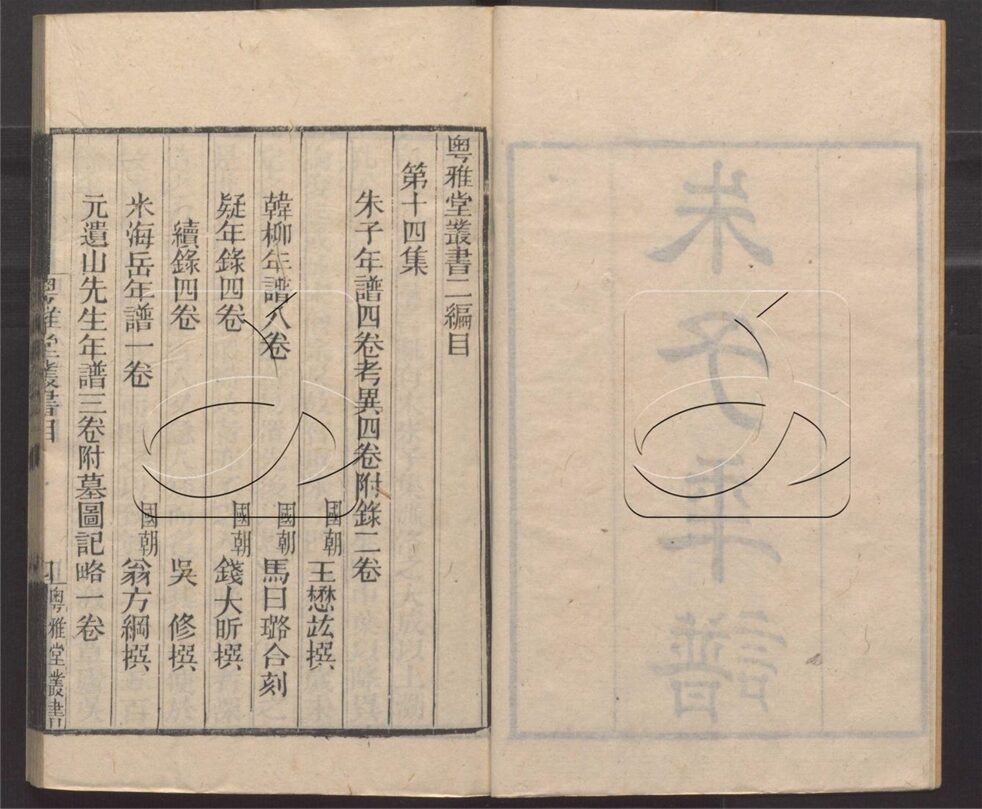 朱子年譜
粵雅堂叢書二編目
第十四集
朱子年譜四卷考異四卷附錄二卷
國朝 王懋竑撰
韓柳年譜八卷 國朝 馬曰璐合刻
疑年錄四卷 國朝 錢大昕撰
續錄四卷 吳 修撰
米海岳年譜一卷 國朝 翁方綱撰
元遺山先生年譜三卷附墓圖記略一卷
粵雅堂叢書目 粵雅堂叢書